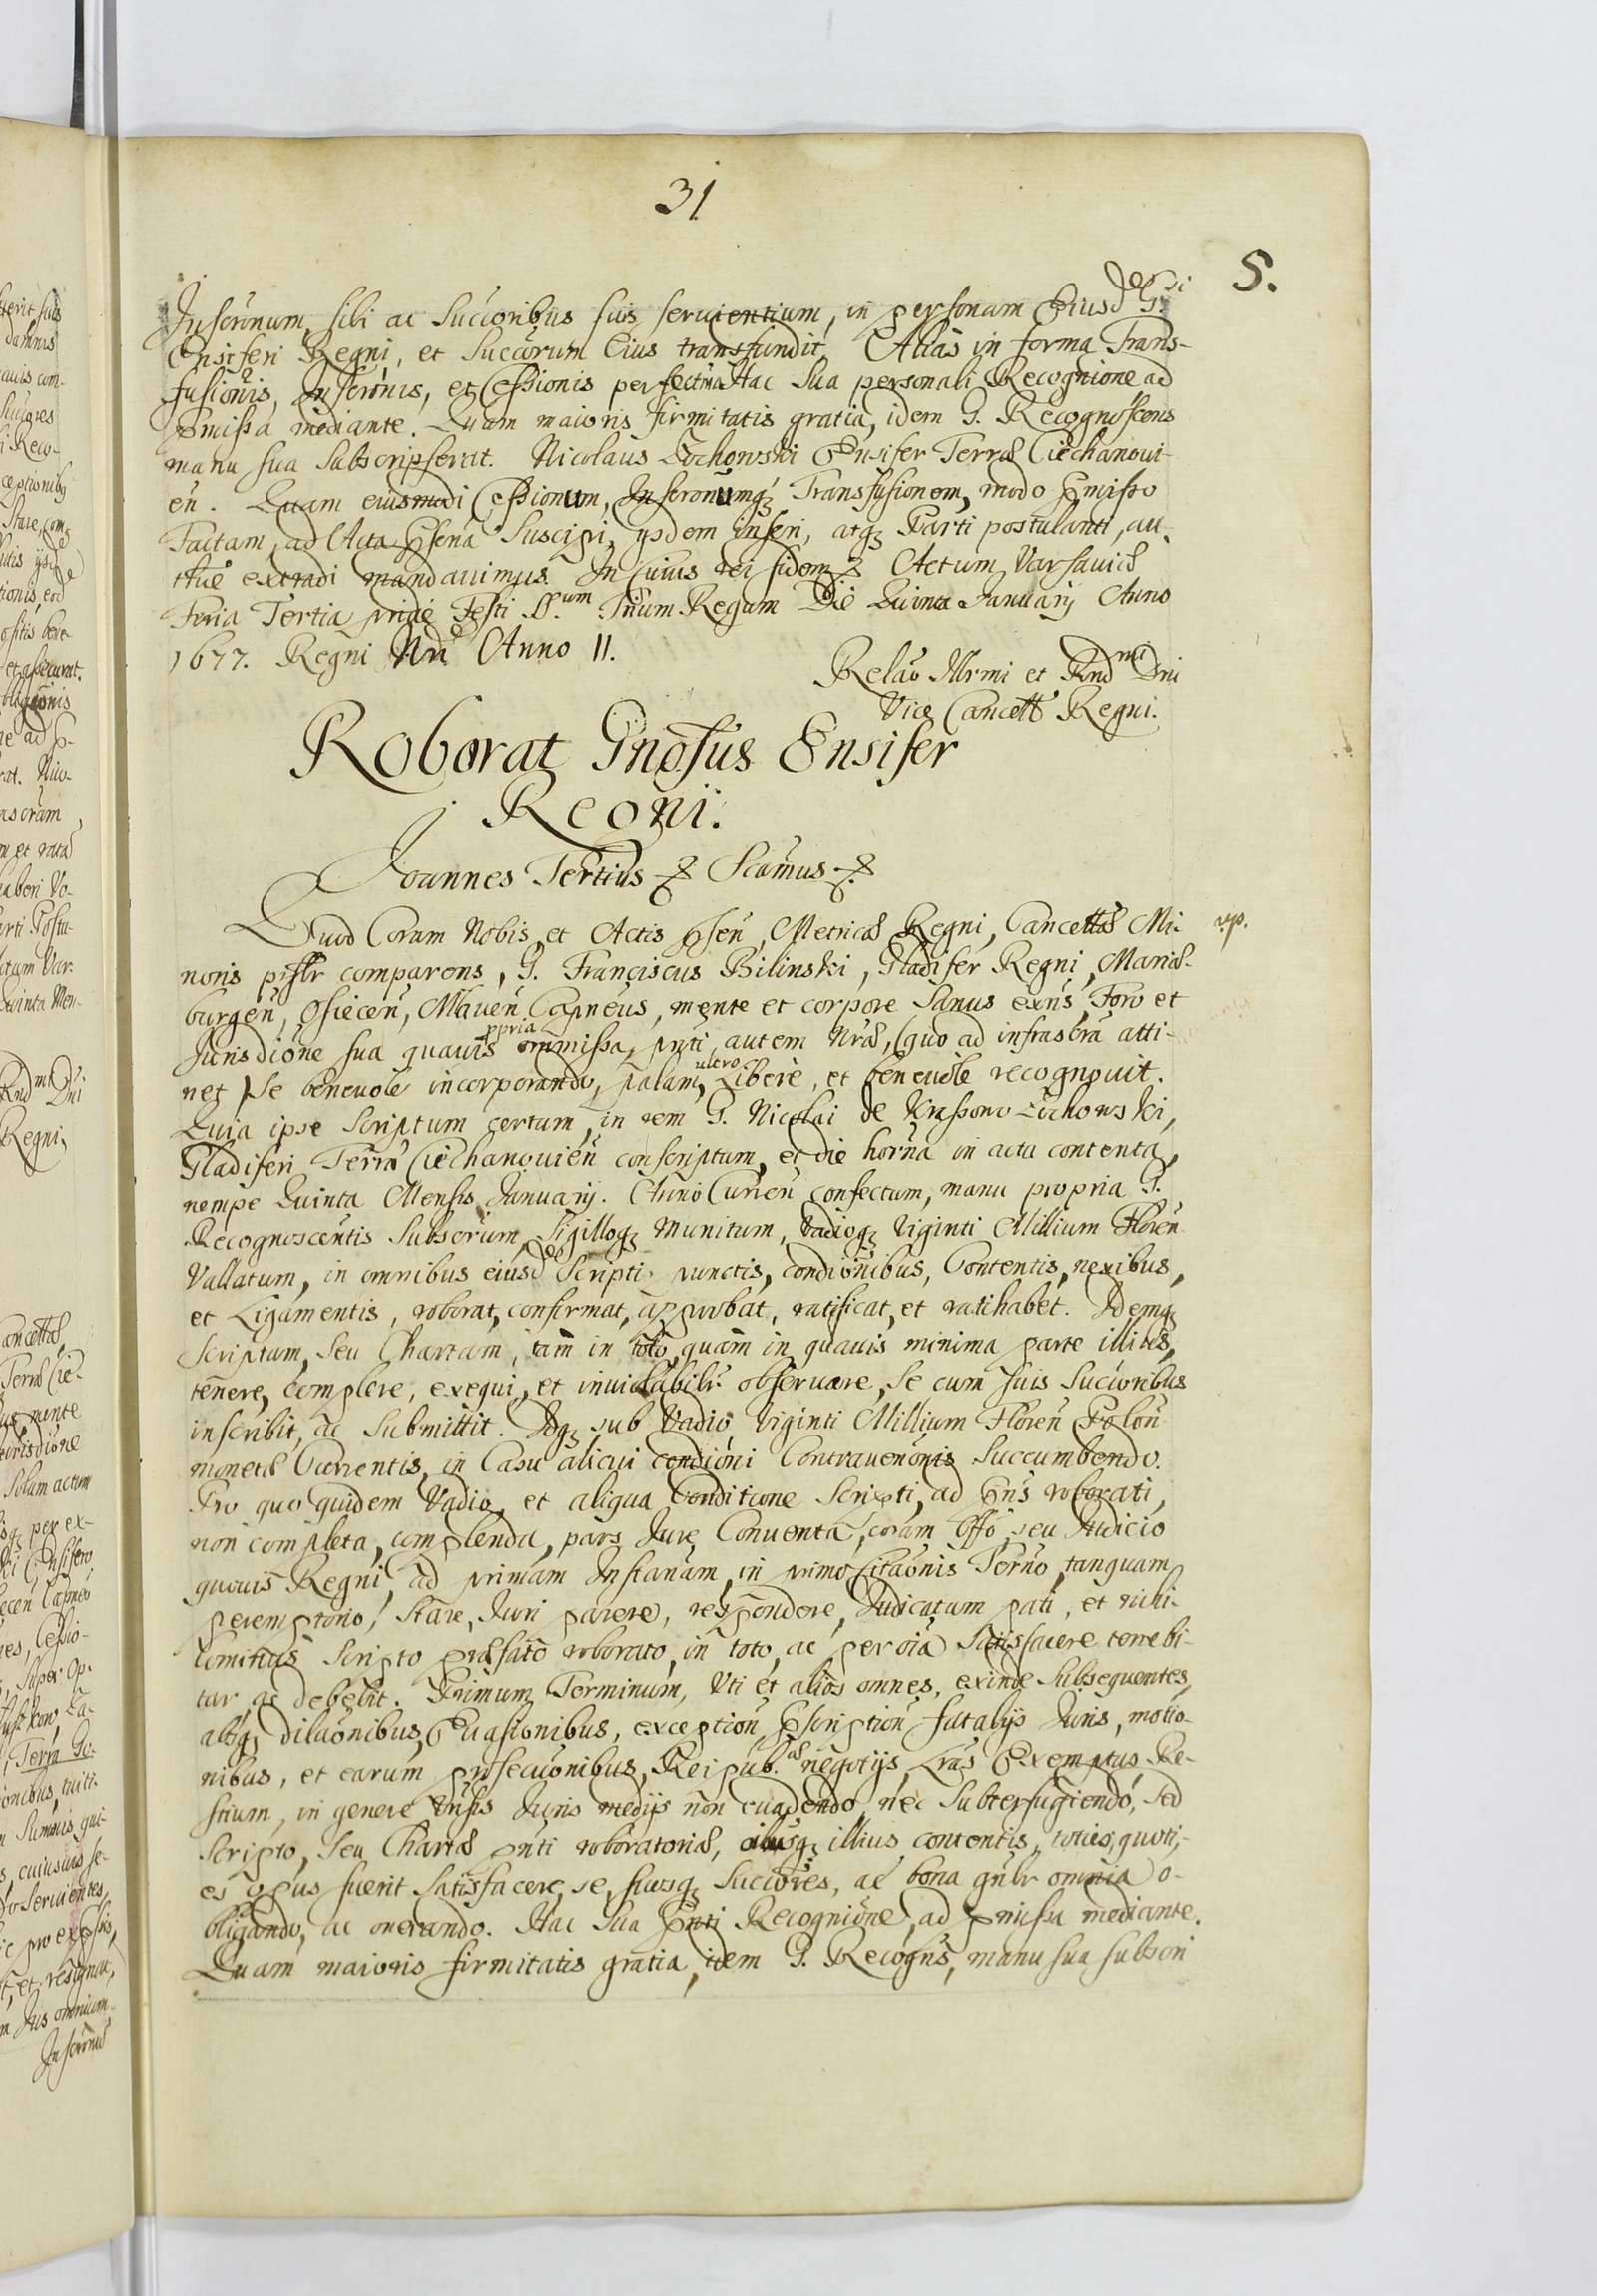 31
S.
Inscrōnum, sibi ac Succoribus suis servientium, in personam Eiusd G.si
Ensiferi Regni, et Succorum Eius transfundit, Alias in forma Trans-
fusionis, Inscrōnis, et Cessionis perfectiva Hac Sua personali Recognione ad
pmissa mediante. Quam maioris firmitatis gratia, idem G. Recognoscens
manu sua Subscripserat. Nicolaus Łochowski Ensifer Terræ Ciechanoui-
en̄. Quam eiusmodi Cessionum, Inscronumq; Transfusionem, modo pmisso
Factam, ad Acta psena Suscipi, ysdem inseri, atq; Parti postulanti, au-
thue extradi mandauimus. In Cuius rei fidem Actum Varsaviæ
Feria Tertia pridie Festi SS.um Trium Regum Die Quinta January Anno
1677. Regni Nri Anno II.
Relao Illrmi et Rndmi Dni
Vice Cancell Regni.
Roborat Gnosus Ensifer
Regni.
Joannes Tertius Scamus
Quod Coram Nobis et Actis psen, Metricæ Regni, Cancellæ Mi-
rp.
noris prslr comparens, G. Franciscus Bilinski, Gladifer Regni, Mariæ-
burgen̄, Osiecen̄, Capneus, mente et corpore Sanus exns, Foro et
Jurisdione sua quavis ppria ommissa, pnti autem Nræ, (quo ad infrascra atti-
net) Se benevole incorporando, palam, ultro Libere, et benevole recognovit.
Quia ipse Scriptum certum, in rem G. Nicolai de Krassowo Łochowski,
Gladiferi Terræ Ciechanovien̄ conscriptum, et die horna in actu contenta,
nempe Quinta Mensis January. Anno Curren̄ confectum, manu propria G.
Recognoscentis Subscrum, Sigilloq; Munitum, Vadioq; Viginti Millium Floren
Vallatum, in omnibus eiusd Scripti punctis, condionibus, Contentis, nexibus,
et Ligamentis, roborat, confirmat, approbat, ratificat, et ratihabet. Idemq;
Scriptum, Seu Chartam, tam in toto, quam in quavis minima parte illius,
tenere, complere, exequi, et inviolabilr observare, Se cum suis Succoribus
inscribit, ac Submittit. Idq; sub Vadio, Viginti Millium Floren̄ Polon̄
monetæ Currentis, in Casu alicui condioni Contravenonis Succumbendo.
Pro quo quidem Vadio, et aliqua Conditione Scripti, ad pns roborati,
non completa, complenda, pars Jure Conventa, coram Offo, seu Judicio
quovis Regni, ad primam Instanam, in primo Citaonis Terno, tanquam
peremptorio, Stare, Juri parere, respondere, Judicatum pati, et nihi-
lominus Scripto præfato roborato, in toto, ac per oia Satisfacere tenebi-
tur, ac debebit. Primum Terminum, Uti et alios omnes, exinde Subsequentes,
absq; dilaonibus, Evasionibus, exception, pscription fatalijs Juris, motio-
nibus, et earum prosecuonibus, Reipub.æ negotijs, Lras Exemptus Re-
strium, in genere Vnsis Juris medijs non evadendo, nec Subterfugiendo, Sed
Scripto, Seu Chartæ pnti roboratoriæ, oibusq; illius contentis, toties, quoti-
es opus fuerit Satisfacere, se, suosq; Succores, ac bona gnlr omnia o-
bligando, ac onerando. Hac Sua pnti Recognione, ad pmissa mediante.
Quam maioris firmitatis gratia, idem G. Recogns, manu sua subscri